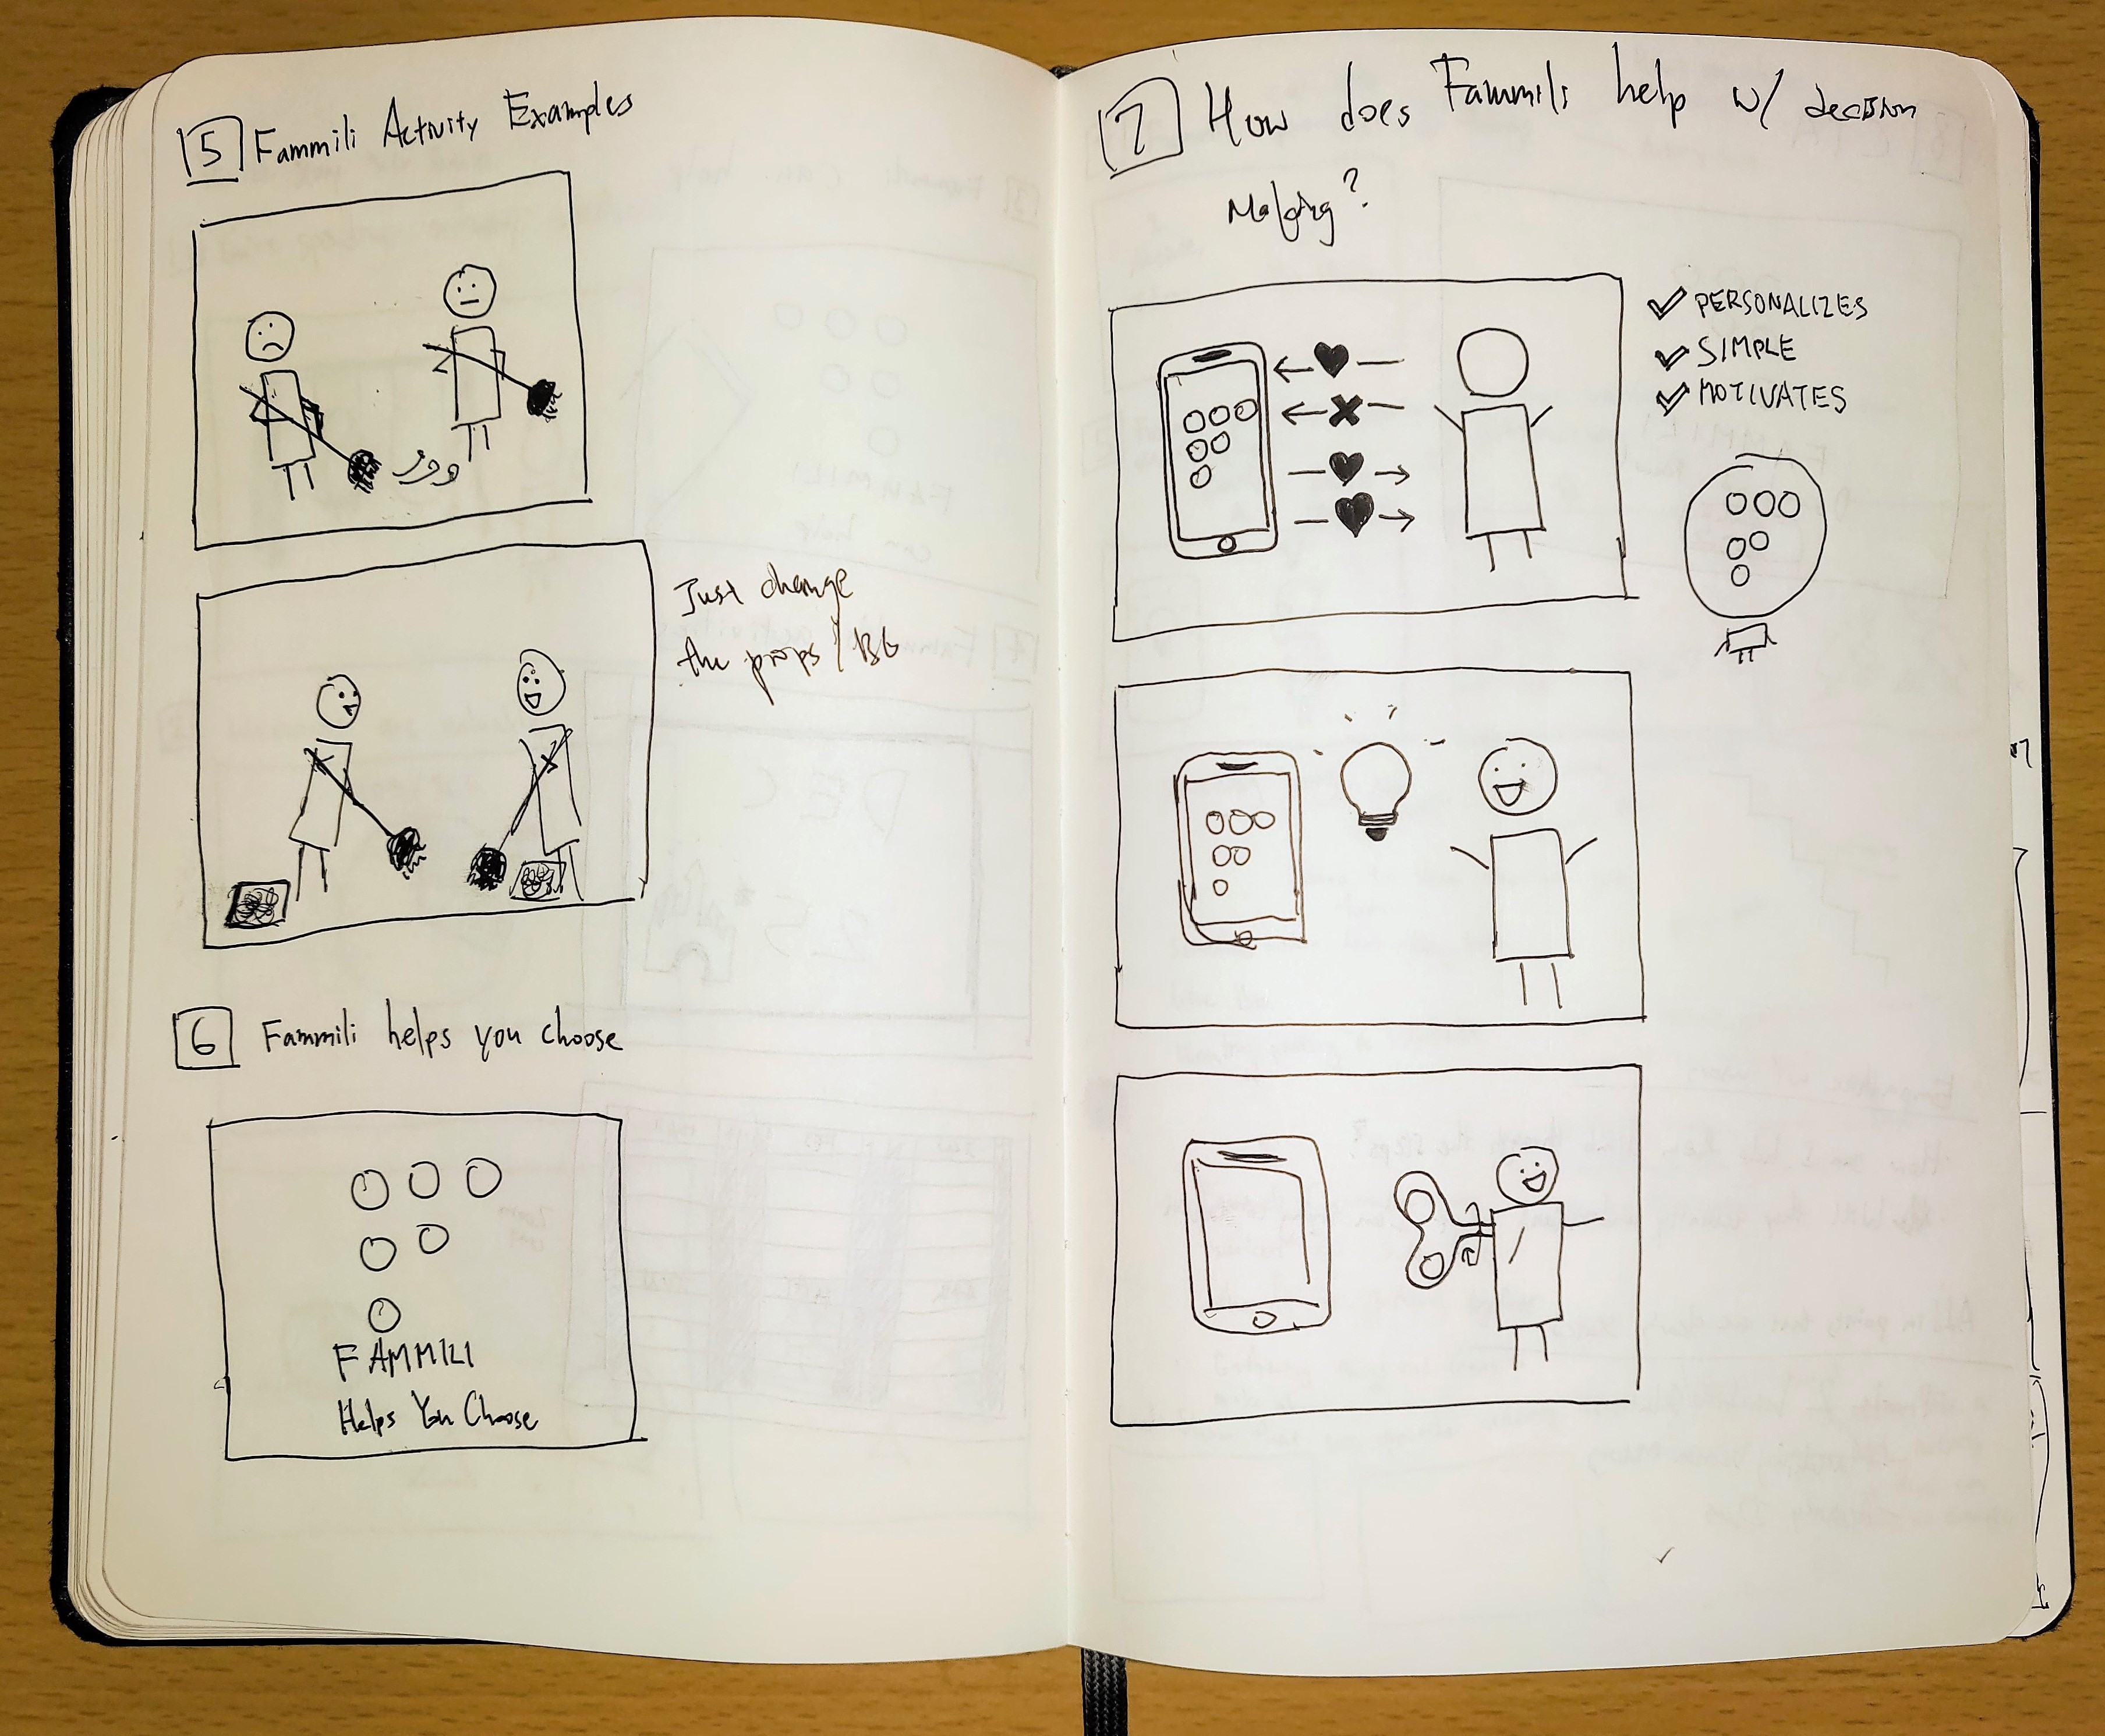 5 Fammili Activity Examples
Just change
the props / BG
6 Fammili helps you choose
FAMMILI
Helps You Choose
7 How does Fammili help w/ decision
Making?
✓ PERSONALIZES
✓ SIMPLE
✓ MOTIVATES